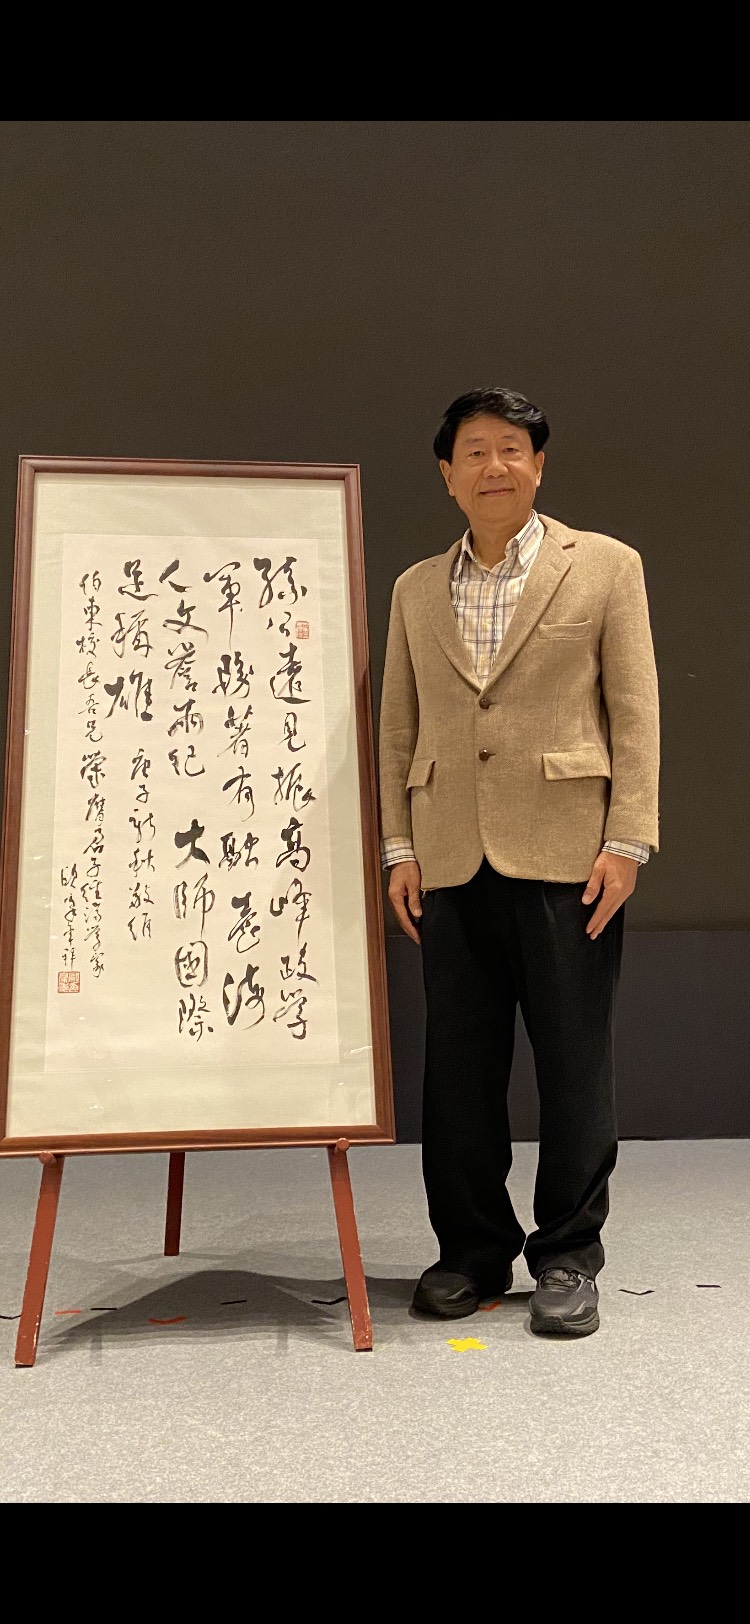 孫公遠見振高峰政學
軍著有融臺海
人文譽兩紀 大師國際
足稱雄 庚子新秋敬頌
伯東校長吾兄 榮膺君子經濟學家